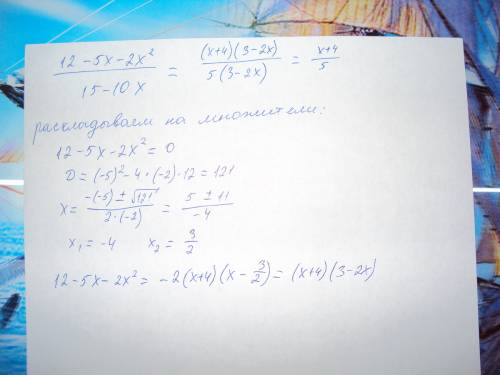 (12 - 5x - 2x²)/(15 - 10x) = ((x+4)(3-2x))/(5(3-2x)) = (x+4)/5
раскладываем на множители:
12 - 5x - 2x² = 0
D = (-5)² - 4·(-2)·12 = 121
x = (-(-5) ± √121)/(2·(-2)) = (5 ± 11)/(-4)
x₁ = -4 x₂ = 3/2
12 - 5x - 2x² = -2(x+4)(x - 3/2) = (x+4)(3-2x)